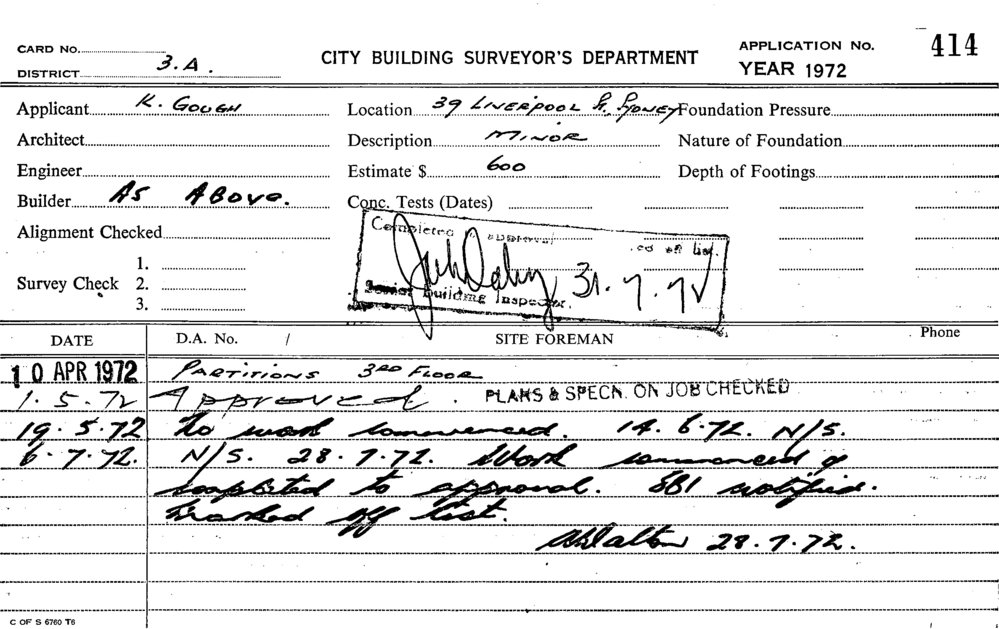 CARD No.
DISTRICT 3.A.
CITY BUILDING SURVEYOR'S DEPARTMENT
APPLICATION No. 414
YEAR 1972
Applicant K. GOUGH
Location 39 LIVERPOOL St. SYDNEY
Foundation Pressure
Architect
Description MINOR
Nature of Foundation
Engineer
Estimate $ 600
Depth of Footings
Builder AS ABOVE.
Conc. Tests (Dates)
Alignment Checked
Completed approval
off list.
31.7.72
Senior Building Inspector.
Survey Check
1.
2.
3.
DATE
D.A. No. /
SITE FOREMAN
Phone
10 APR 1972 PARTITIONS 3RD FLOOR
1.5.72 Approved. PLANS & SPECN. ON JOB CHECKED
19.5.72 No work commenced. 14.6.72. N/S.
6.7.72. N/S. 28.7.72. Work commenced &
completed to approval. SBI notified.
Marked off list.
Dalton 28.7.72.
C OF S 6760 T6